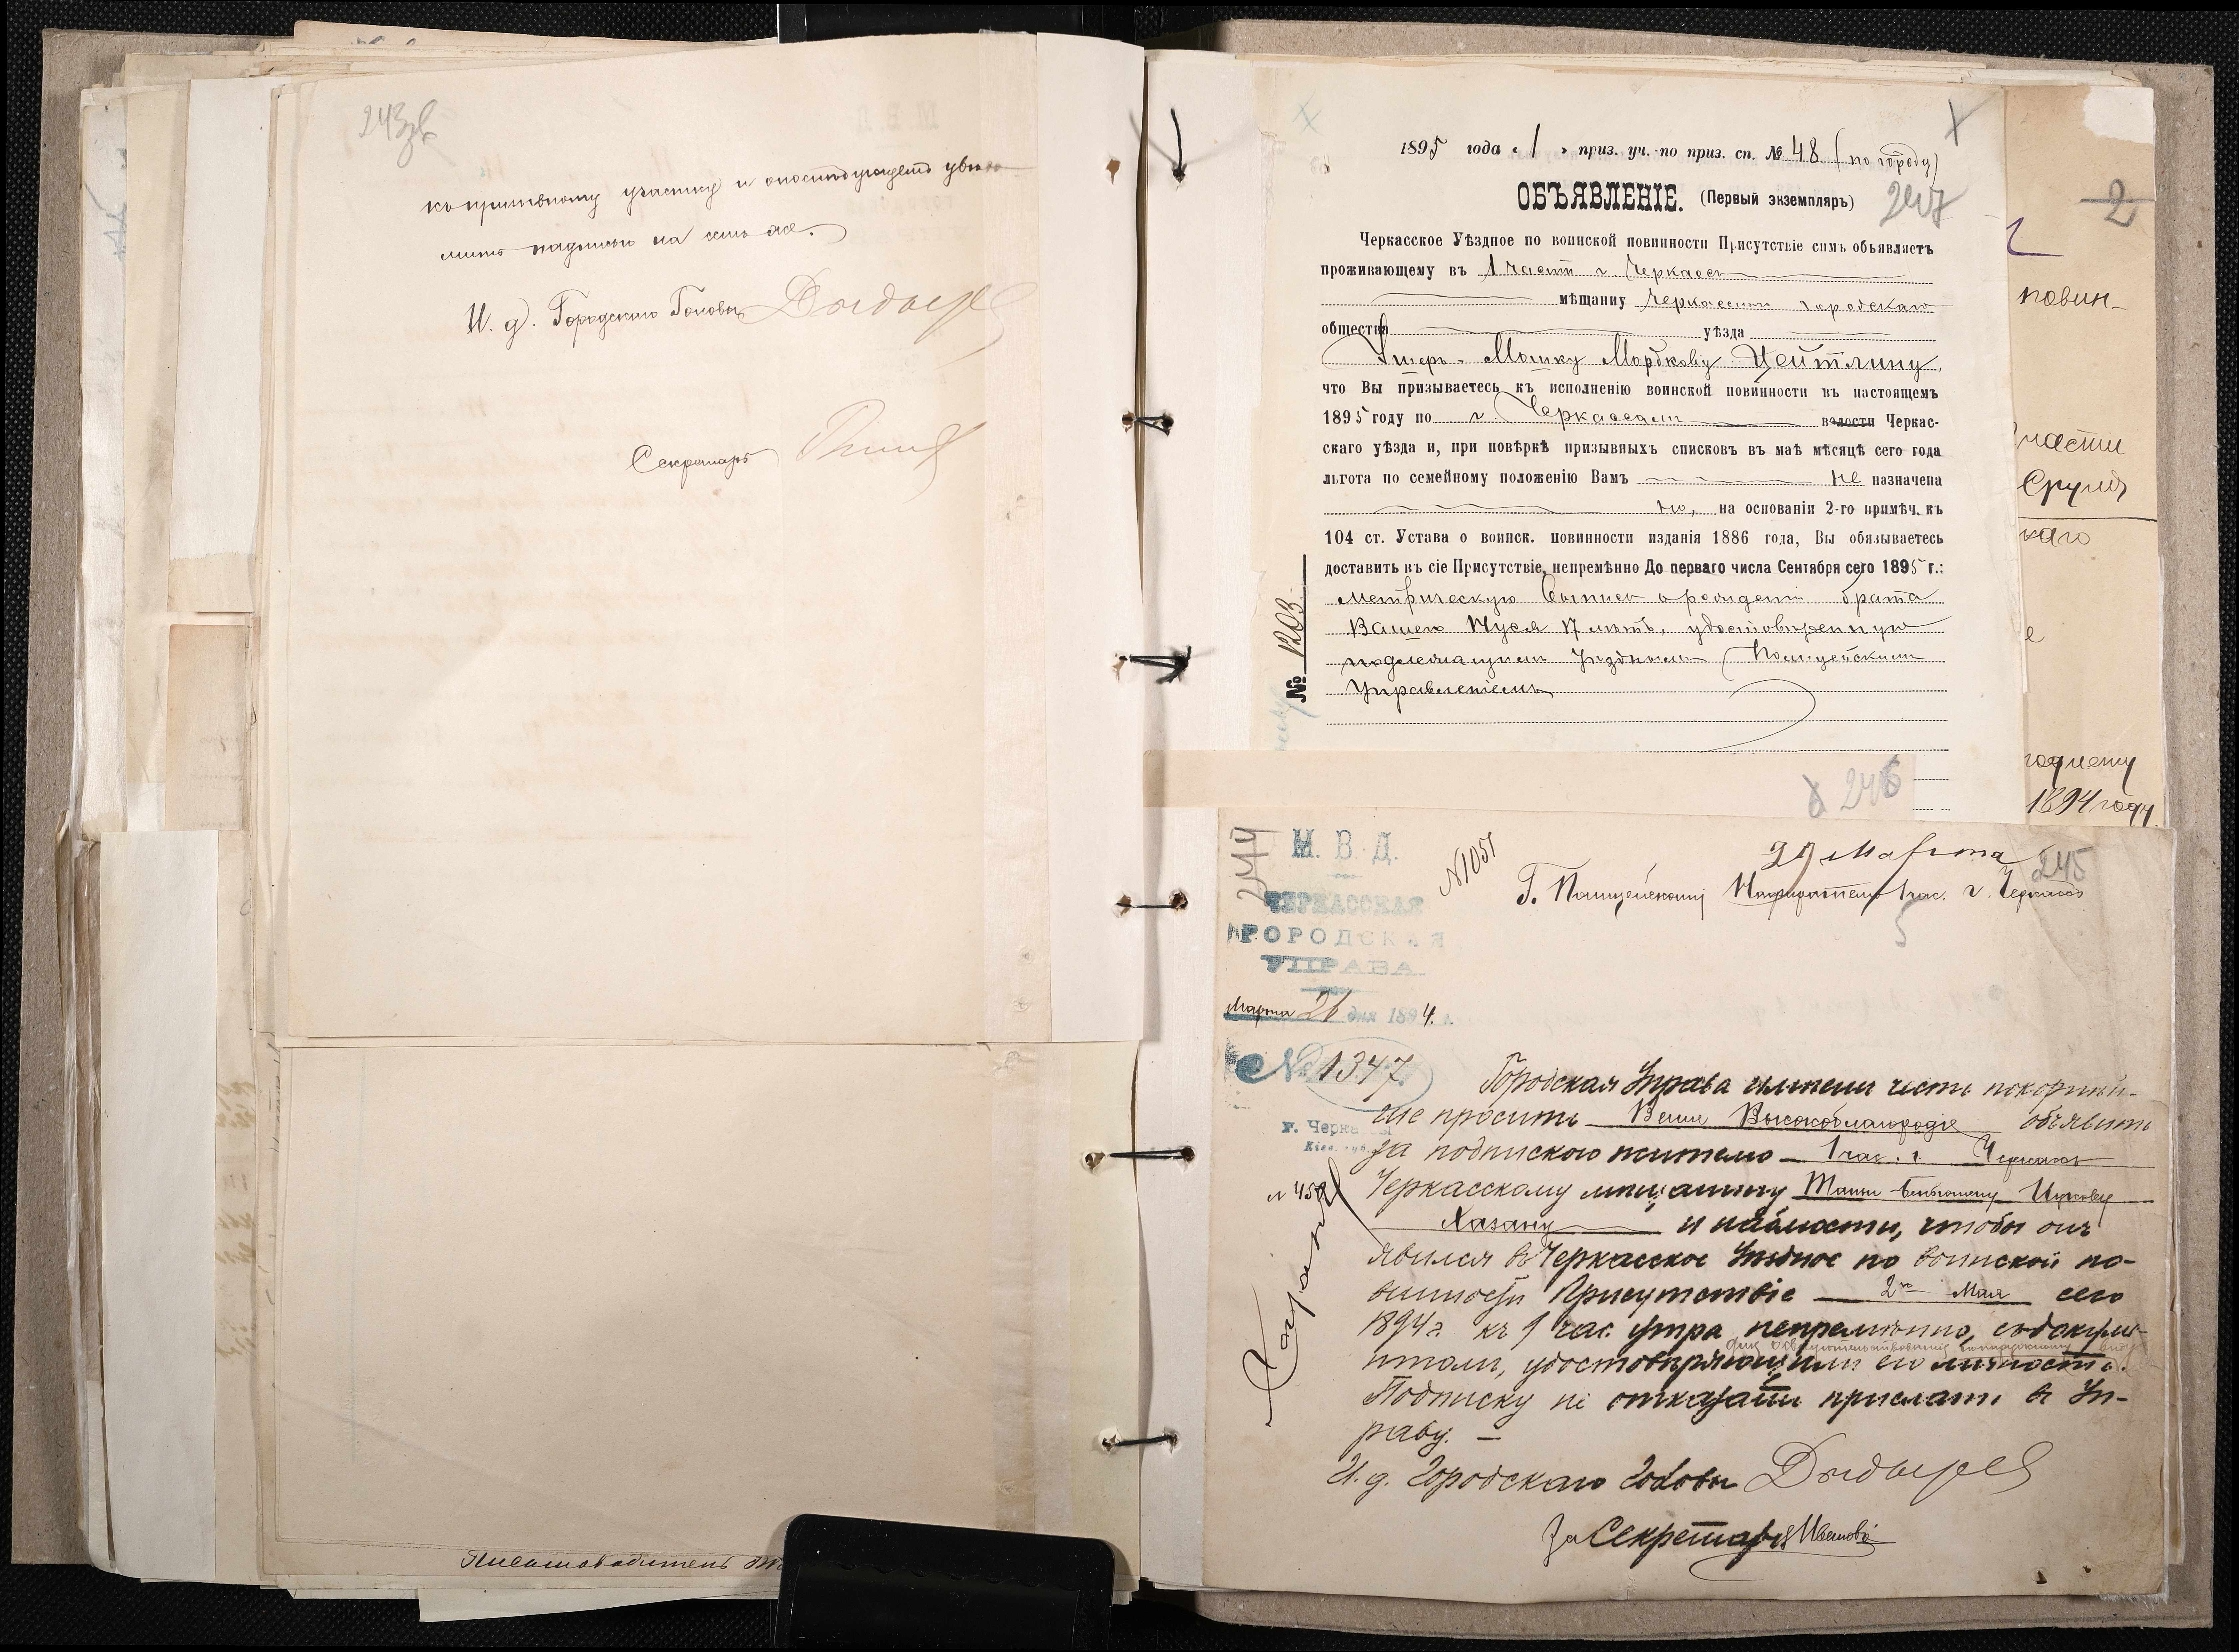 243об
къ призывному участку и о послѣдующемъ увѣдо-
мить надписью на семъ же.
И. д. Городскаго Головы
Секретарь
1895 года «1» приз. уч. по приз. сп. № 48 (по городу)
ОБЪЯВЛЕНІЕ. (Первый экземпляръ) 247
Черкасское Уѣздное по воинской повинности Присутствіе симъ объявляетъ
проживающему въ 1 части г. Черкасъ
мѣщанину Черкасскаго городскаго
общества уѣзда
Мошку Мордкову Цейтлину,
что Вы призываетесь къ исполненію воинской повинности въ настоящемъ
1895 году по г. Черкассамъ волости Черкас-
скаго уѣзда и, при повѣркѣ призывныхъ списковъ въ маѣ мѣсяцѣ сего года
льгота по семейному положенію Вамъ не назначена
но, на основаніи 2-го примѣч. къ
104 ст. Устава о воинск. повинности изданія 1886 года, Вы обязываетесь
доставить въ сіе Присутствіе, непремѣнно До перваго числа Сентября сего 1895 г.:
метрическую выпись о рожденіи брата
Вашего Нуся 17 лѣтъ, удостовѣренную
подлежащимъ Уѣзднымъ Полицейскимъ
Управленіемъ
№ 1203
2
повин-
части
каго
е
1894 году.
246
244
М. В. Д.
ЧЕРКАССКАЯ
ГОРОДСКАЯ
УПРАВА
Марта 26 дня 1894 г.
№ 1347
г. Черкассы
№ 1051
29 Марта
245
Г. Полицейскому Надзирателю 1 час. г. Черкассъ
Городская Управа имѣетъ честь покорнѣй-
ше просить Ваше Высокоблагородіе объявить
за подпискою жителю 1 час. г. Черкассъ
Черкасскому мѣщанину Ицкову
Хазану и чтобы онъ
явился въ Черкасское Уѣздное по воинской по-
винности Присутствіе 2го Мая сего
1894 г. къ 9 час. утра непремѣнно, съ докуме-
нтами, удостовѣряющими его личность.
Подписку не отказать прислать въ Уп-
раву. —
И. д. Городскаго Головы
За Секретаря Ивановъ